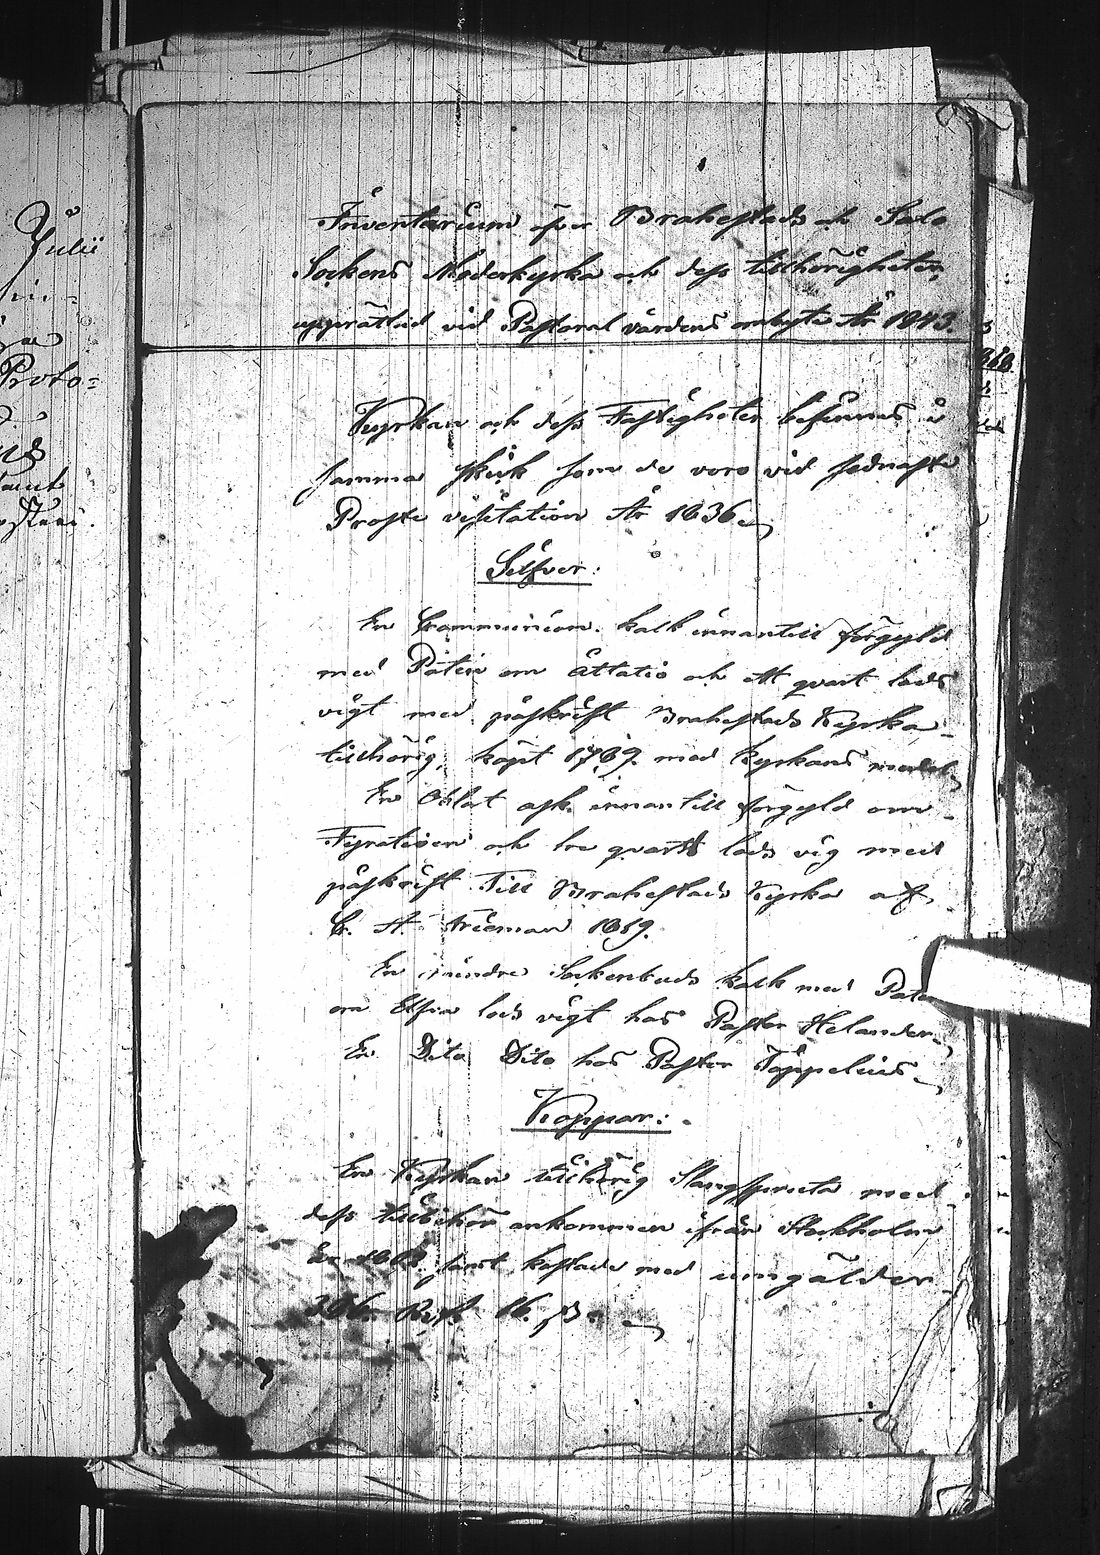 Julii
Proto=
Inventarium öfver Brahestads och Salo
Sockens Moderkyrka och dess tillhörigheter,
upprättad vid Pastoral vårdens ombyte År 1843.
Kyrkan och dess Fastigheter befinnas i
samma skick som de voro vid sednaste
Probste visitation År 1836
Silfver:
En Communion kalk innantill förgyld
med Paten om åttatio och ett qvart lods
vigt med påskrift Brahestads Kyrka
tillhörig, köpt 1769. med Kyrkans medel
En Oblat ask innantill förgyld om
Fyratioen och tre qvarts lods vig med
påskrift Till Brahestads Kyrka af
C. A. 
En mindre Sockenbuds kalk med Paten
om Elfva lods vigt hos Pastor Helander
En Dito Dito hos Pastor Toppelius
Koppar:
En Kyrkan tillhörig Slangspruta med
dess tillbehör ankommen ifrån Stockholm
samt kostade med umgälder
16. β.